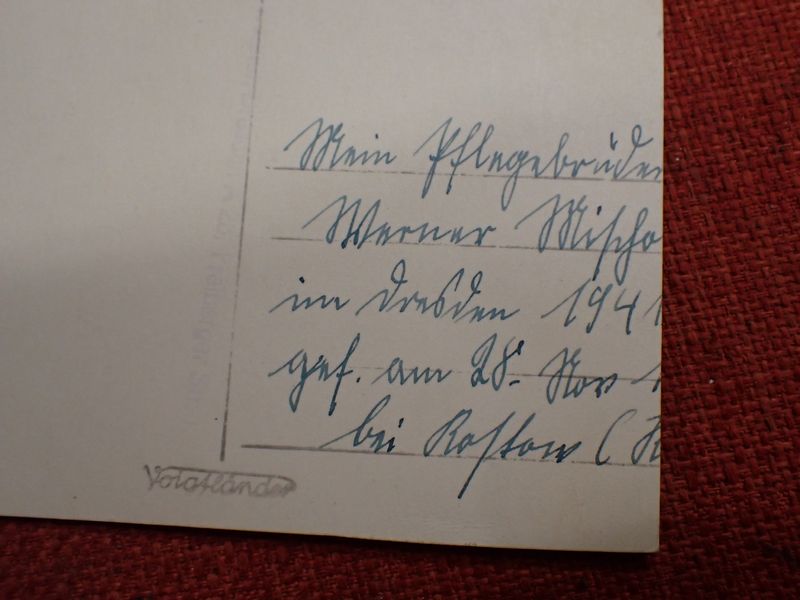 Mein Pflegebruder
Werner Mischo
im Dresden 1941
gef. am 28. Nov
bei Rostow (R
Voigtländer